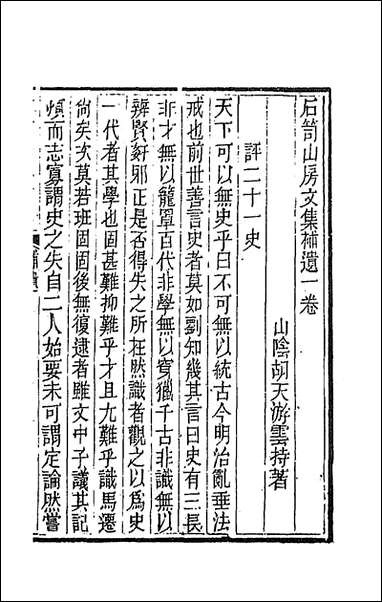 石笥山房文集補遺一卷
山陰胡天游雲持著
評二十一史
天下可以無史乎曰不可無以統古今明治亂垂法
戒也前世善言史者莫如劉知幾其言曰史有三長
非才無以籠罩百代非學無以窮獵千古非識無以
辨賢姧邪正是否得失之所在然識者觀之以爲史
一代者其學也固甚難抑難乎才且尤難乎識馬遷
尚矣次莫若班固固後無復逮者雖文中子議其記
煩而志寡謂史之失自二人始要未可謂定論然嘗
補遺